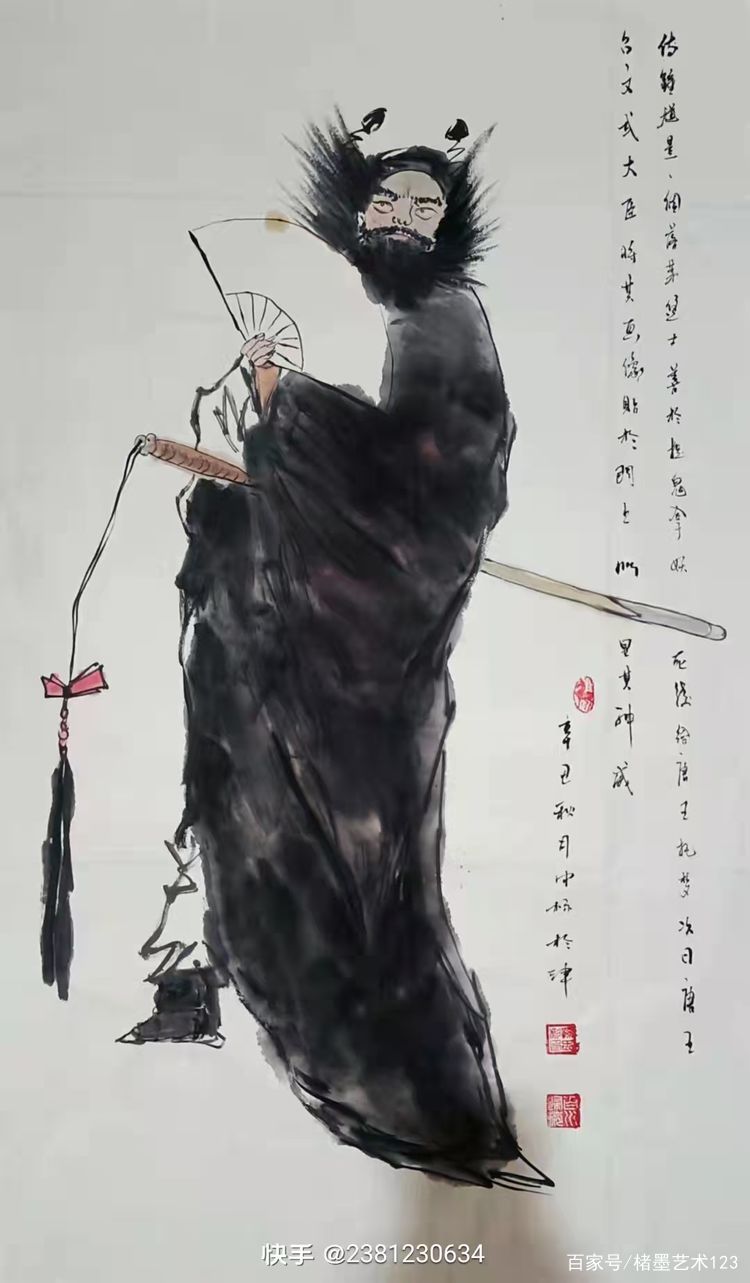 传鍾馗是一個落第進士善於捉鬼拿妖 死後给唐王托梦次日唐王
召文武大臣將其画像貼於門上以 显其神威
辛丑秋月 於津
快手 @2381230634
百家号/楮墨艺术123